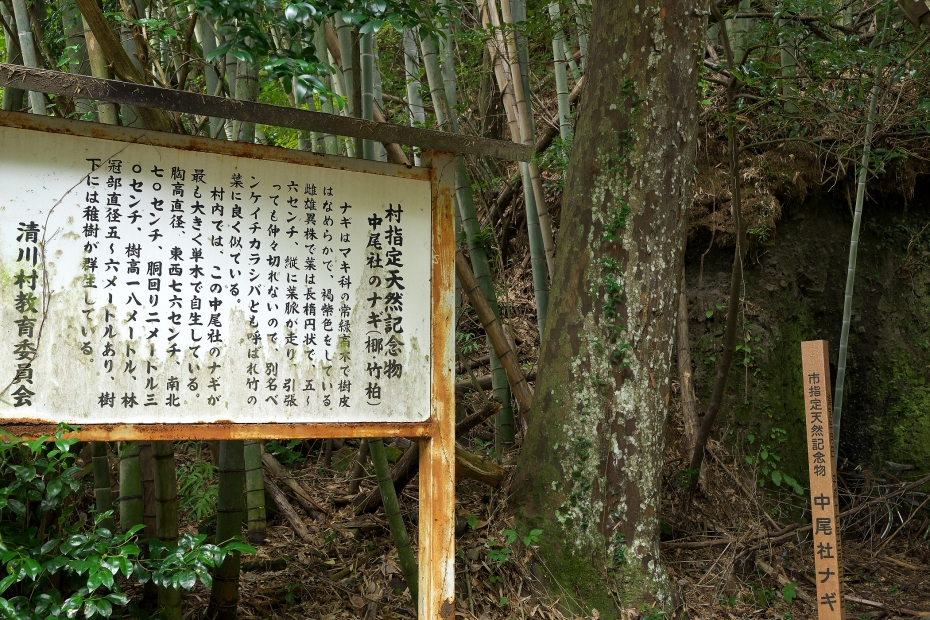 村指定天然記念物
中尾社のナギ(梛、竹柏)
ナギはマキ科の常緑高木で樹皮
はなめらかで、褐紫色をしている
雌雄異株で葉は長楕円状で、五~
六センチ、縦に葉脈が走り、引張
っても仲々切れないので、別名ベ
ンケイチカラシバとも呼ばれ竹の
葉に良く似ている。
村内では、この中尾社のナギが
最も大きく単木で自生している。
胸高直径、東西七六センチ、南北
七〇センチ、胴回り二メートル三
〇センチ、樹高一八メートル、林
冠部直径五~六メートルあり、樹
下には稚樹が群生している。
清川村教育委員会
市指定天然記念物 中尾社ナギ